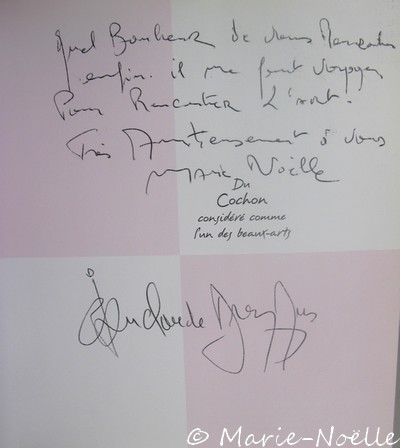 Quel Bonheur de vous Rencontrer
enfin. il me faut voyager
Pour Rencontrer L'art.
Très Amitieusement à vous
Marie Noëlle
Du
Cochon
considéré comme
l'un des beaux-arts
Jean Claude Dreyfus
© Marie-Noëlle